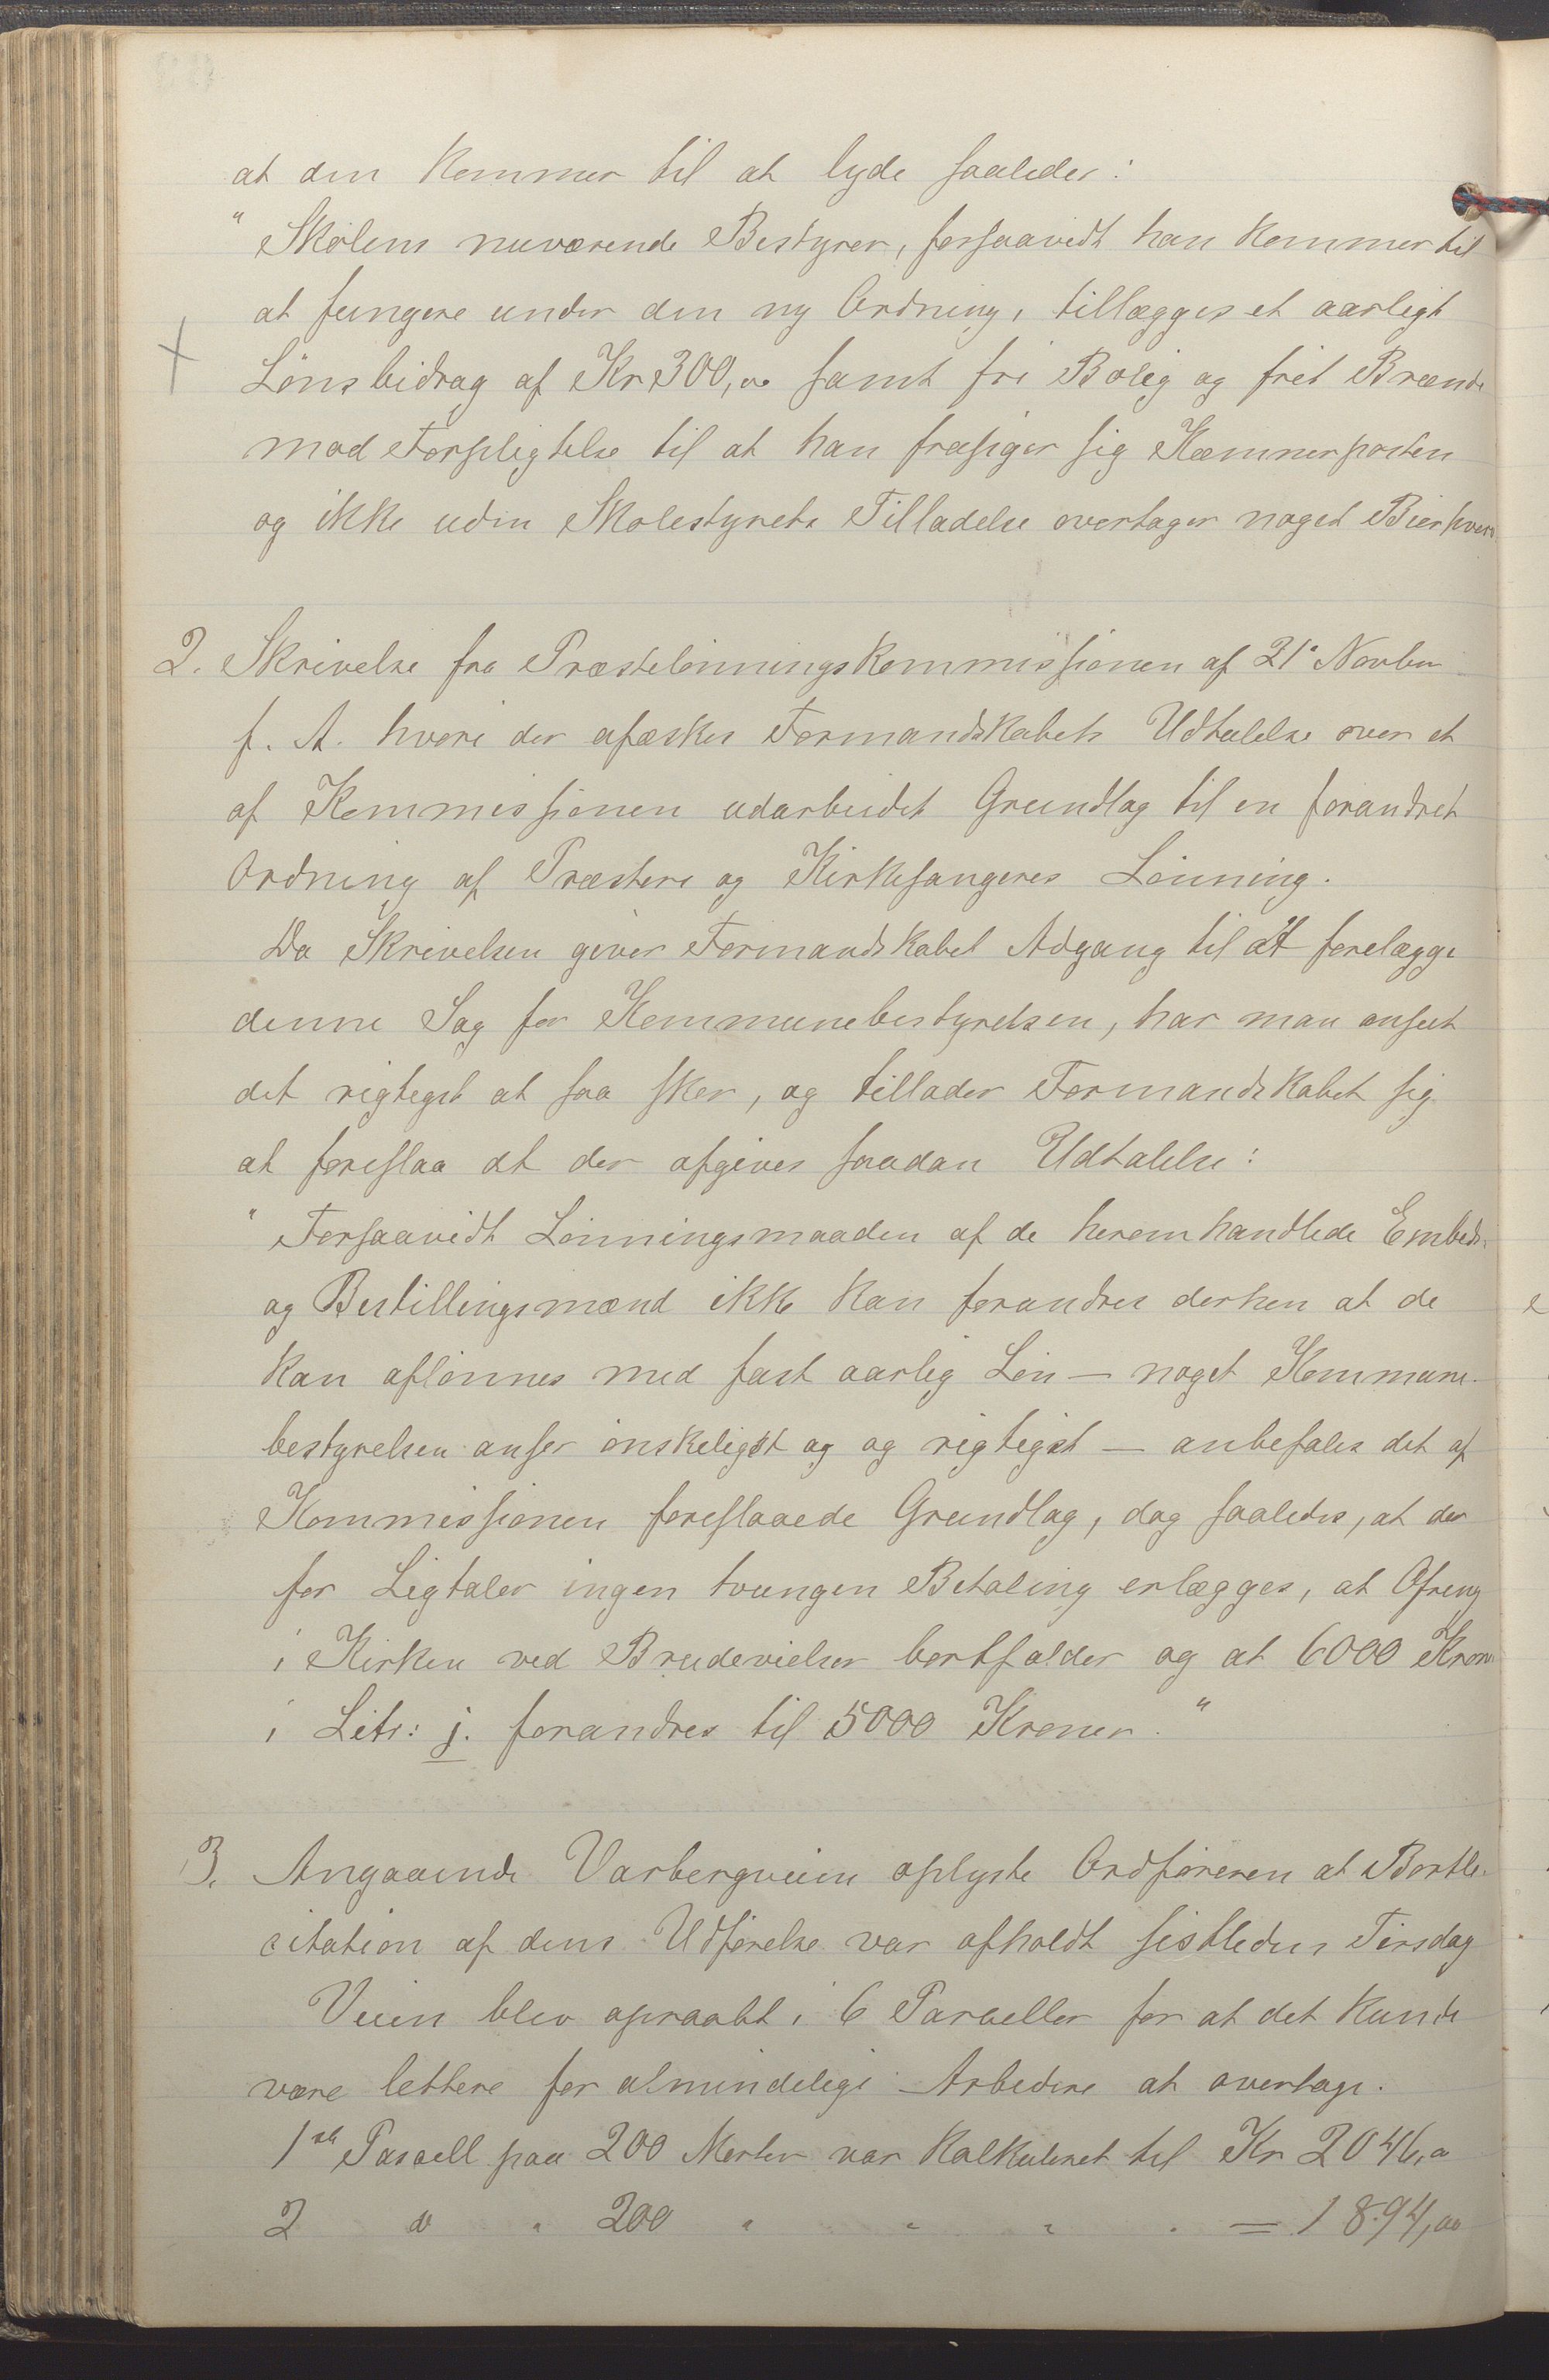 at den kommer til at lyde saaledes:
"Skolens nuværende Bestyrer, forsaavidt han kommer til
at fungere under den ny Ordning, tillægges et aarligt
Lønsbidrag af Kr 300,00 samt fri Bolig og frit Brænde
mod Forpligtelse til at han frasiger sig Kæmnerposten
og ikke uden Skolestyrets Tilladelse overtager noget Bierhverv
2. Skrivelse fra Præstelønningskommissionen af 21 Novbr
f. A. hvori der afæskes Formandskabets Udtalelse over et
af Kommissionen udarbeidet Grundlag til en forandret
Ordning af Præsters og Kirkesangeres Lønning.
Da Skrivelsen giver Formandskabet Adgang til at forelægge
denne Sag for Kommunebestyrelsen, har man anseet
det rigtigst at saa sker, og tillader Formandskabet sig
at foreslaa at der afgives saadan Udtalelse:
"Forsaavidt Lønningsmaaden af de heromhandlede Embeds-
og Bestillingsmænd ikke kan forandres derhen at de
kan aflønnes med fast aarlig Løn — noget Kommune-
bestyrelsen anser ønskeligst og og rigtigst — anbefales det af
Kommissionen foreslaaede Grundlag, dog saaledes, at der
for Ligtaler ingen tvungen Betaling erlægges, at Ofring
i Kirken ved Brudevielser bortfalder og at 6000 Kroner
i Litr: j. forandres til 5000 Kroner."
3. Angaaende Varbergveien oplyste Ordføreren at Bortli-
citation af dens Udførelse var afholdt sistleden Tirsdag
Veien blev opraabt i 6 Parceller for at det kunde
være lettere for almindelige Arbeidere at overtage.
1ste Parcell paa 200 Meter var kalkuleret til Kr 2046,00
2 do " 200 " " " " = 1894,00